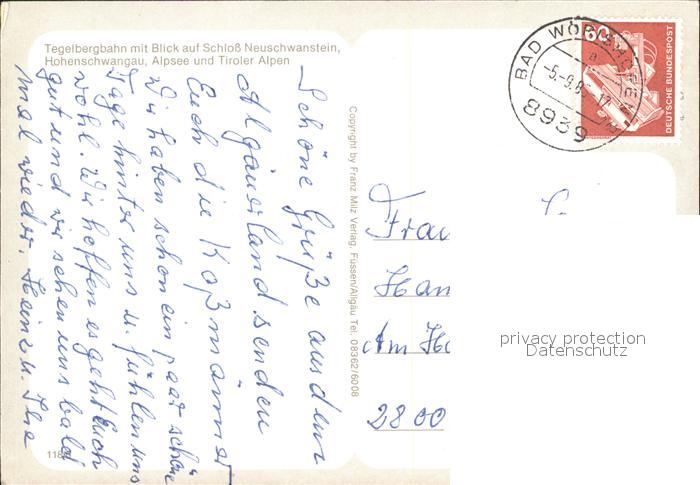 Tegelbergbahn mit Blick auf Schloß Neuschwanstein,
Hohenschwangau, Alpsee und Tiroler Alpen
Schöne Grüße aus dem
Algäuerland senden
Euch die Koßmänner
Wir haben schon ein paar schöne
Tage hinter uns u. fühlen uns
wohl. Wir hoffen es geht Euch
gut und wir sehen uns bald
mal wieder. Heinz u. Ilse
118
Copyright by Franz Milz Verlag, Füssen/Allgäu Tel. 08362/6008
BAD WÖRISHOFEN
a
-5.-9.8
8939
60
DEUTSCHE BUNDESPOST
Frau
Han
Am Ho
2800
privacy protection
Datenschutz